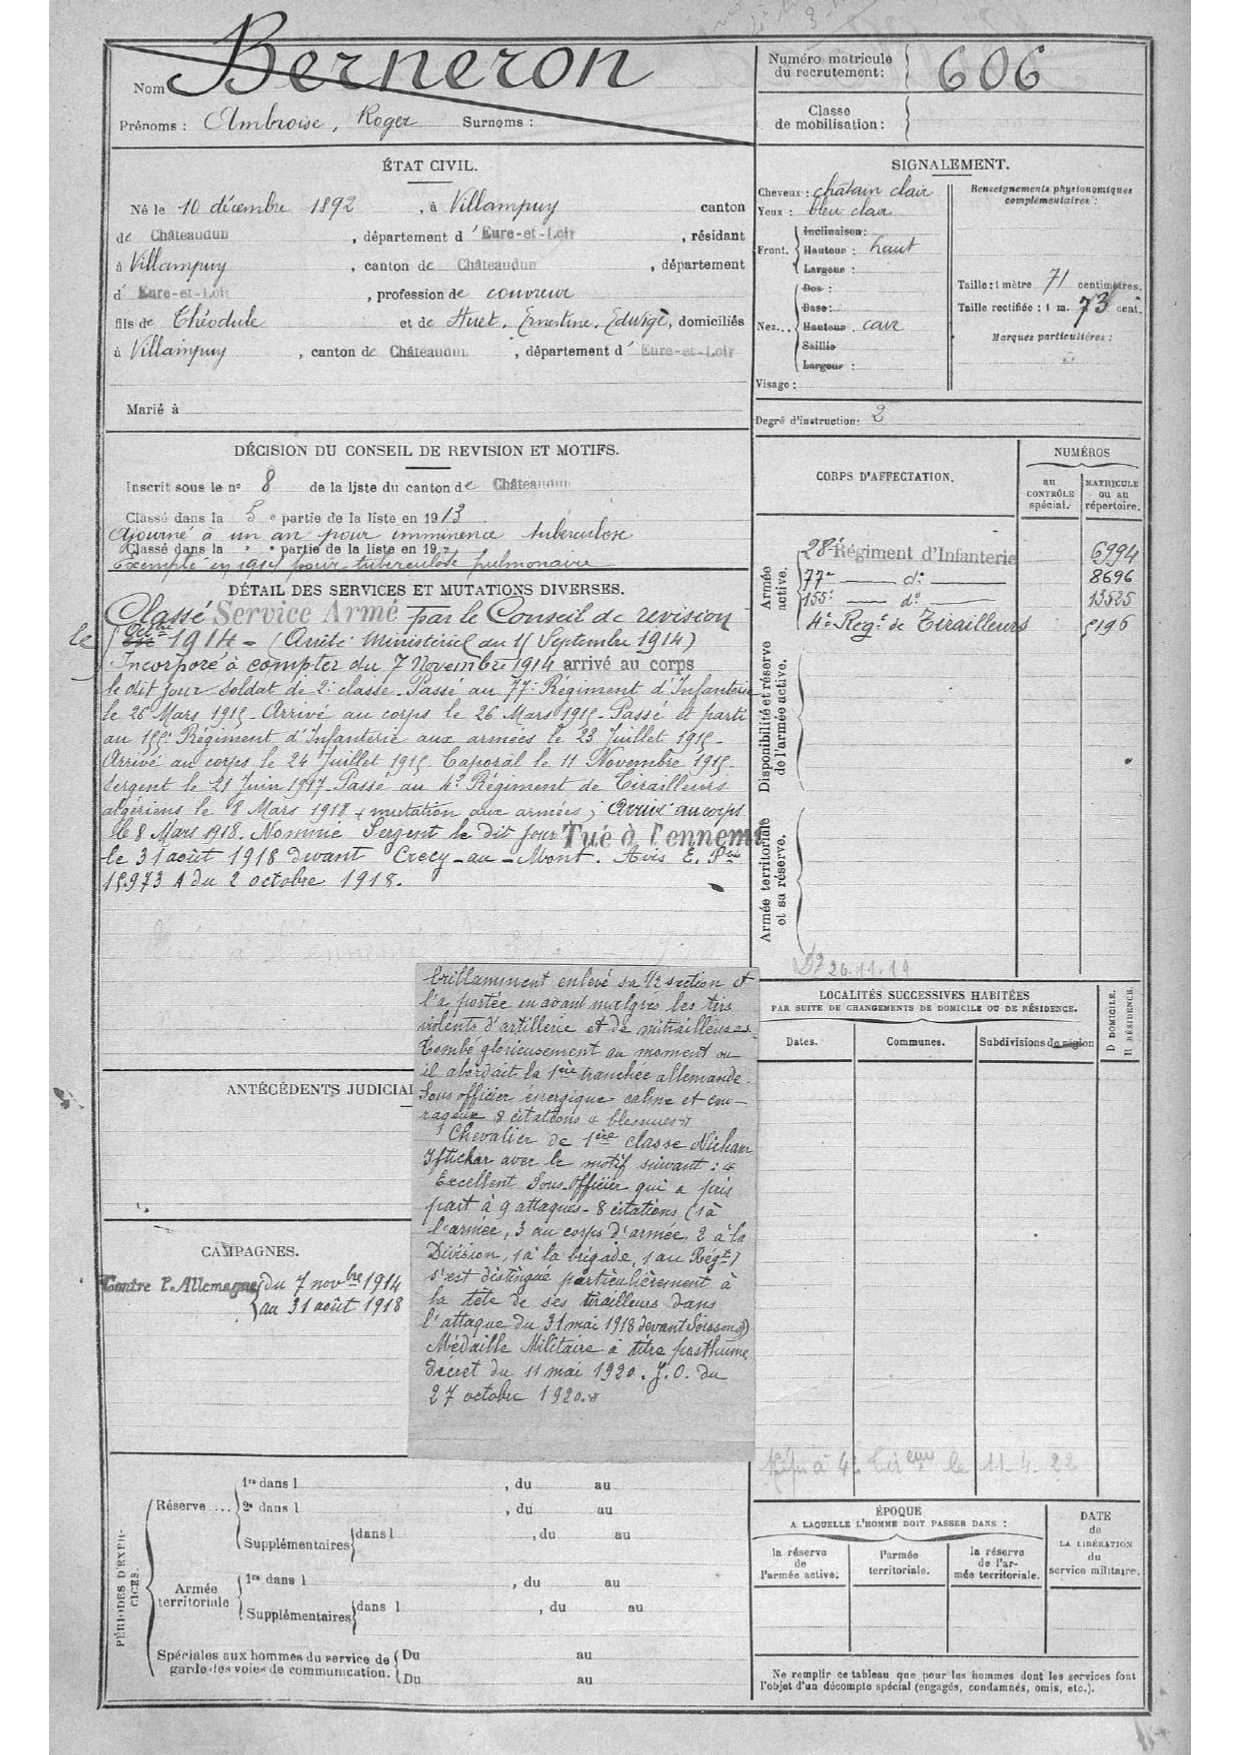 Nom Berneron
Prénoms : Ambroise, Roger Surnoms :
Numéro matricule
du recrutement : 606
Classe
de mobilisation :
ÉTAT CIVIL.
Né le 10 décembre 1892, à Villampuy canton
de Châteaudun, département d'Eure-et-Loir, résidant
à Villampuy, canton de Châteaudun, département
d'Eure-et-Loir, profession de couvreur
fils de Théodule et de Huet, Ernestine, Eduvige, domiciliés
à Villampuy, canton de Châteaudun, département d'Eure-et-Loir
Marié à
SIGNALEMENT.
Cheveux : châtain clair
Yeux : bleu clair
Front. Inclinaison :
Hauteur : haut
Largeur :
Nez... Dos :
Base :
Hauteur cave
Saillie
Largeur :
Visage :
Renseignements physionomiques
complémentaires :
Taille : 1 mètre 71 centimètres.
Taille rectifiée : 1 m. 73 cent.
Marques particulières :
Degré d'instruction : 2
DÉCISION DU CONSEIL DE REVISION ET MOTIFS.
Inscrit sous le n° 8 de la liste du canton de Châteaudun
Classé dans la 5e partie de la liste en 1913
Ajourné à un an pour imminence tuberculose
Classé dans la e partie de la liste en 19
Exempté en 1914 pour tuberculose pulmonaire
DÉTAIL DES SERVICES ET MUTATIONS DIVERSES.
Classé Service Armé par le Conseil de revision
le 1914 - (Arrêté Ministériel du 11 Septembre 1914)
Incorporé à compter du 7 Novembre 1914 arrivé au corps
le dit jour soldat de 2e classe. Passé au 77e Régiment d'Infanterie
le 26 Mars 1915. Arrivé au corps le 26 Mars 1915. Passé et parti
au 155e Régiment d'Infanterie aux armées le 23 Juillet 1915.
Arrivé au corps le 24 Juillet 1915. Caporal le 11 Novembre 1915.
Sergent le 21 Juin 1917. Passé au 4e Régiment de Tirailleurs
algériens le 8 Mars 1918 (mutation aux armées) Arrivé au corps
le 8 Mars 1918. Nommé Sergent le dit jour Tué à l'ennemi
le 31 août 1918 devant Crecy-au-Mont. Avis E. Pre
15.973 A du 2 octobre 1918.
CORPS D'AFFECTATION.
NUMÉROS
au
CONTRÔLE
spécial.
MATRICULE
ou au
répertoire.
Armée
active.
28e Régiment d'Infanterie 6994
77e — do — 8696
155e — do — 13525
4e Régt de Tirailleurs 5196
Disponibilité et réserve
de l'armée active.
Armée territoriale
et sa réserve.
26.11.19
brillamment enlevé sa 1/2 section et
l'a portée en avant malgré les tirs
violents d'artillerie et de mitrailleuses
Tombé glorieusement au moment ou
il abordait la 1ère tranchée allemande.
Sous officier énergique calme et cou-
rageux 8 citations 4 blessures »
Chevalier de 1ère classe Nicham
Iftichar avec le motif suivant : «
Excellent Sous-Officier qui a pris
part à 9 attaques - 8 citations (1 à
l'armée, 3 au corps d'armée, 2 à la
Division, 1 à la brigade, 1 au Régt)
s'est distingué particulièrement à
la tête de ses tirailleurs dans
l'attaque du 31 mai 1918 devant Soissons »
Médaille Militaire à titre posthume
Décret du 11 mai 1920. J.O. du
27 octobre 1920. »
ANTÉCÉDENTS JUDICIAI
CAMPAGNES.
Contre l'Allemagne du 7 novbre 1914
au 31 août 1918
LOCALITÉS SUCCESSIVES HABITÉES
PAR SUITE DE CHANGEMENTS DE DOMICILE OU DE RÉSIDENCE.
Dates.
Communes.
Subdivisions de région
D DOMICILE.
R RÉSIDENCE.
le 11-4-22
PÉRIODES D'EXER-
CICES.
Réserve .... 1re dans l , du au
2e dans l , du au
Supplémentaires dans l , du au
Armée
territoriale 1re dans l , du au
Supplémentaires dans l , du au
Spéciales aux hommes du service de
garde des voies de communication.
Du au
Du au
ÉPOQUE
A LAQUELLE L'HOMME DOIT PASSER DANS :
la réserve
de
l'armée active.
l'armée
territoriale.
la réserve
de l'ar-
mée territoriale.
DATE
de
LA LIBÉRATION
du
service militaire.
Ne remplir ce tableau que pour les hommes dont les services font
l'objet d'un décompte spécial (engagés, condamnés, omis, etc.).